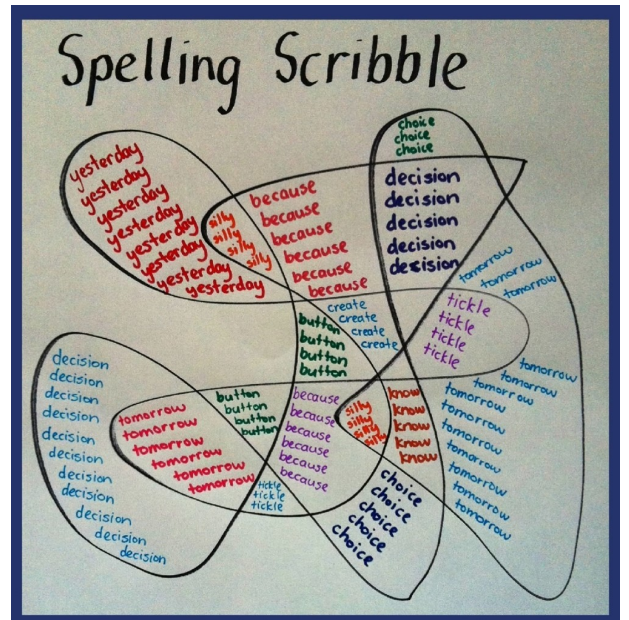 Spelling Scribble
yesterday
yesterday
yesterday
yesterday
yesterday
yesterday
yesterday
yesterday
silly
silly
silly
silly
because
because
because
because
because
because
choice
choice
choice
decision
decision
decision
decision
decision
tomorrow
tomorrow
tomorrow
create
create
create
create
tickle
tickle
tickle
tickle
button
button
button
button
decision
decision
decision
decision
decision
decision
decision
decision
decision
decision
decision
tomorrow
tomorrow
tomorrow
tomorrow
tomorrow
tomorrow
button
button
button
button
because
because
because
because
because
because
silly
silly
silly
silly
know
know
know
know
know
tomorrow
tomorrow
tomorrow
tomorrow
tomorrow
tomorrow
tomorrow
tomorrow
tomorrow
tomorrow
tickle
tickle
tickle
choice
choice
choice
choice
choice